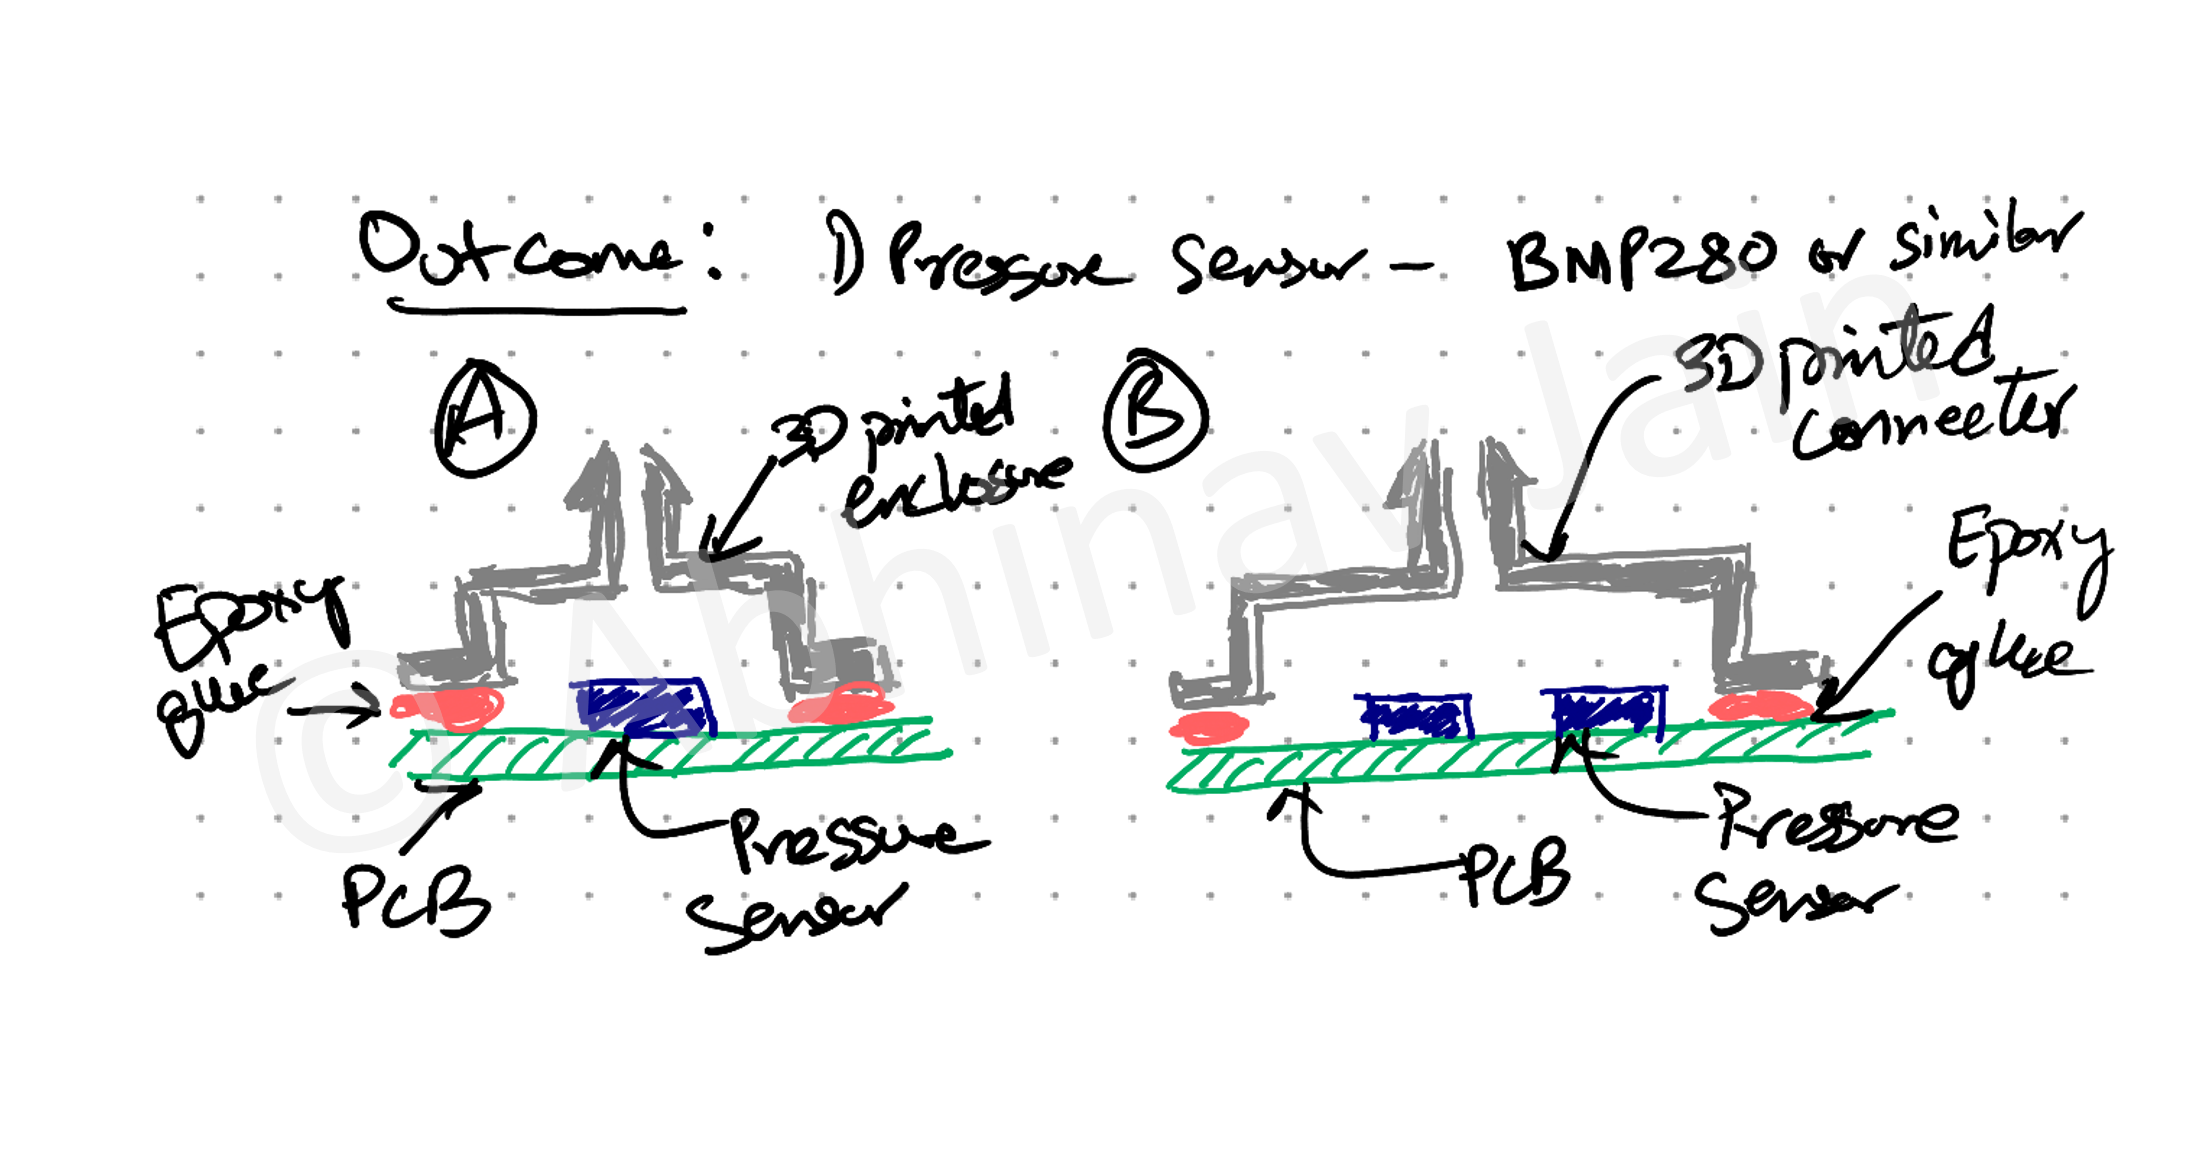 Outcome: 1) Pressure Sensor - BMP280 or similar
A
3D printed
enclosure
Epoxy
glue
PCB
Pressure
Sensor
B
3D printed
connecter
Epoxy
glue
PCB
Pressure
Sensor
© Abhinav Jain